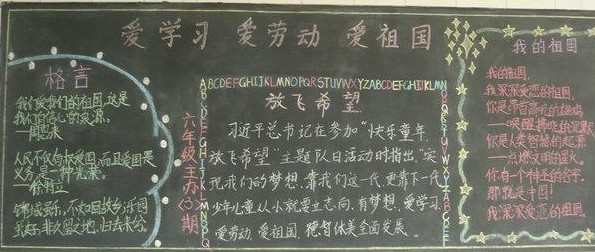 爱学习 爱劳动 爱祖国
格言
我们爱我们的祖国,这是
我们自信心的源泉。
—周恩来
人民不仅有权爱国,而且爱国是
义务,是一种光荣。
—徐特立
锦城虽乐,不如回故乡;乐园
虽好,非久留之地,归去来兮。
六年级主办(3)期
ABCDEFGHIJKLMNOPQRSTUVWXYZABCDEFGHIJKLMN
放飞希望
习近平总书记在参加“快乐童年,
放飞希望”主题队日活动时指出,“实
现我们的梦想,靠我们这一代,更靠下一代
少年儿童从小就要立志向,有梦想,爱学习
爱劳动,爱祖国,德智体美全面发展。
我的祖国
我的祖国,
我深深爱恋的祖国。
你是
你是人类智慧的起源
—点燃文明的星火。
你有一个神圣的名字,
那就是中国!
我深深爱恋的祖国。